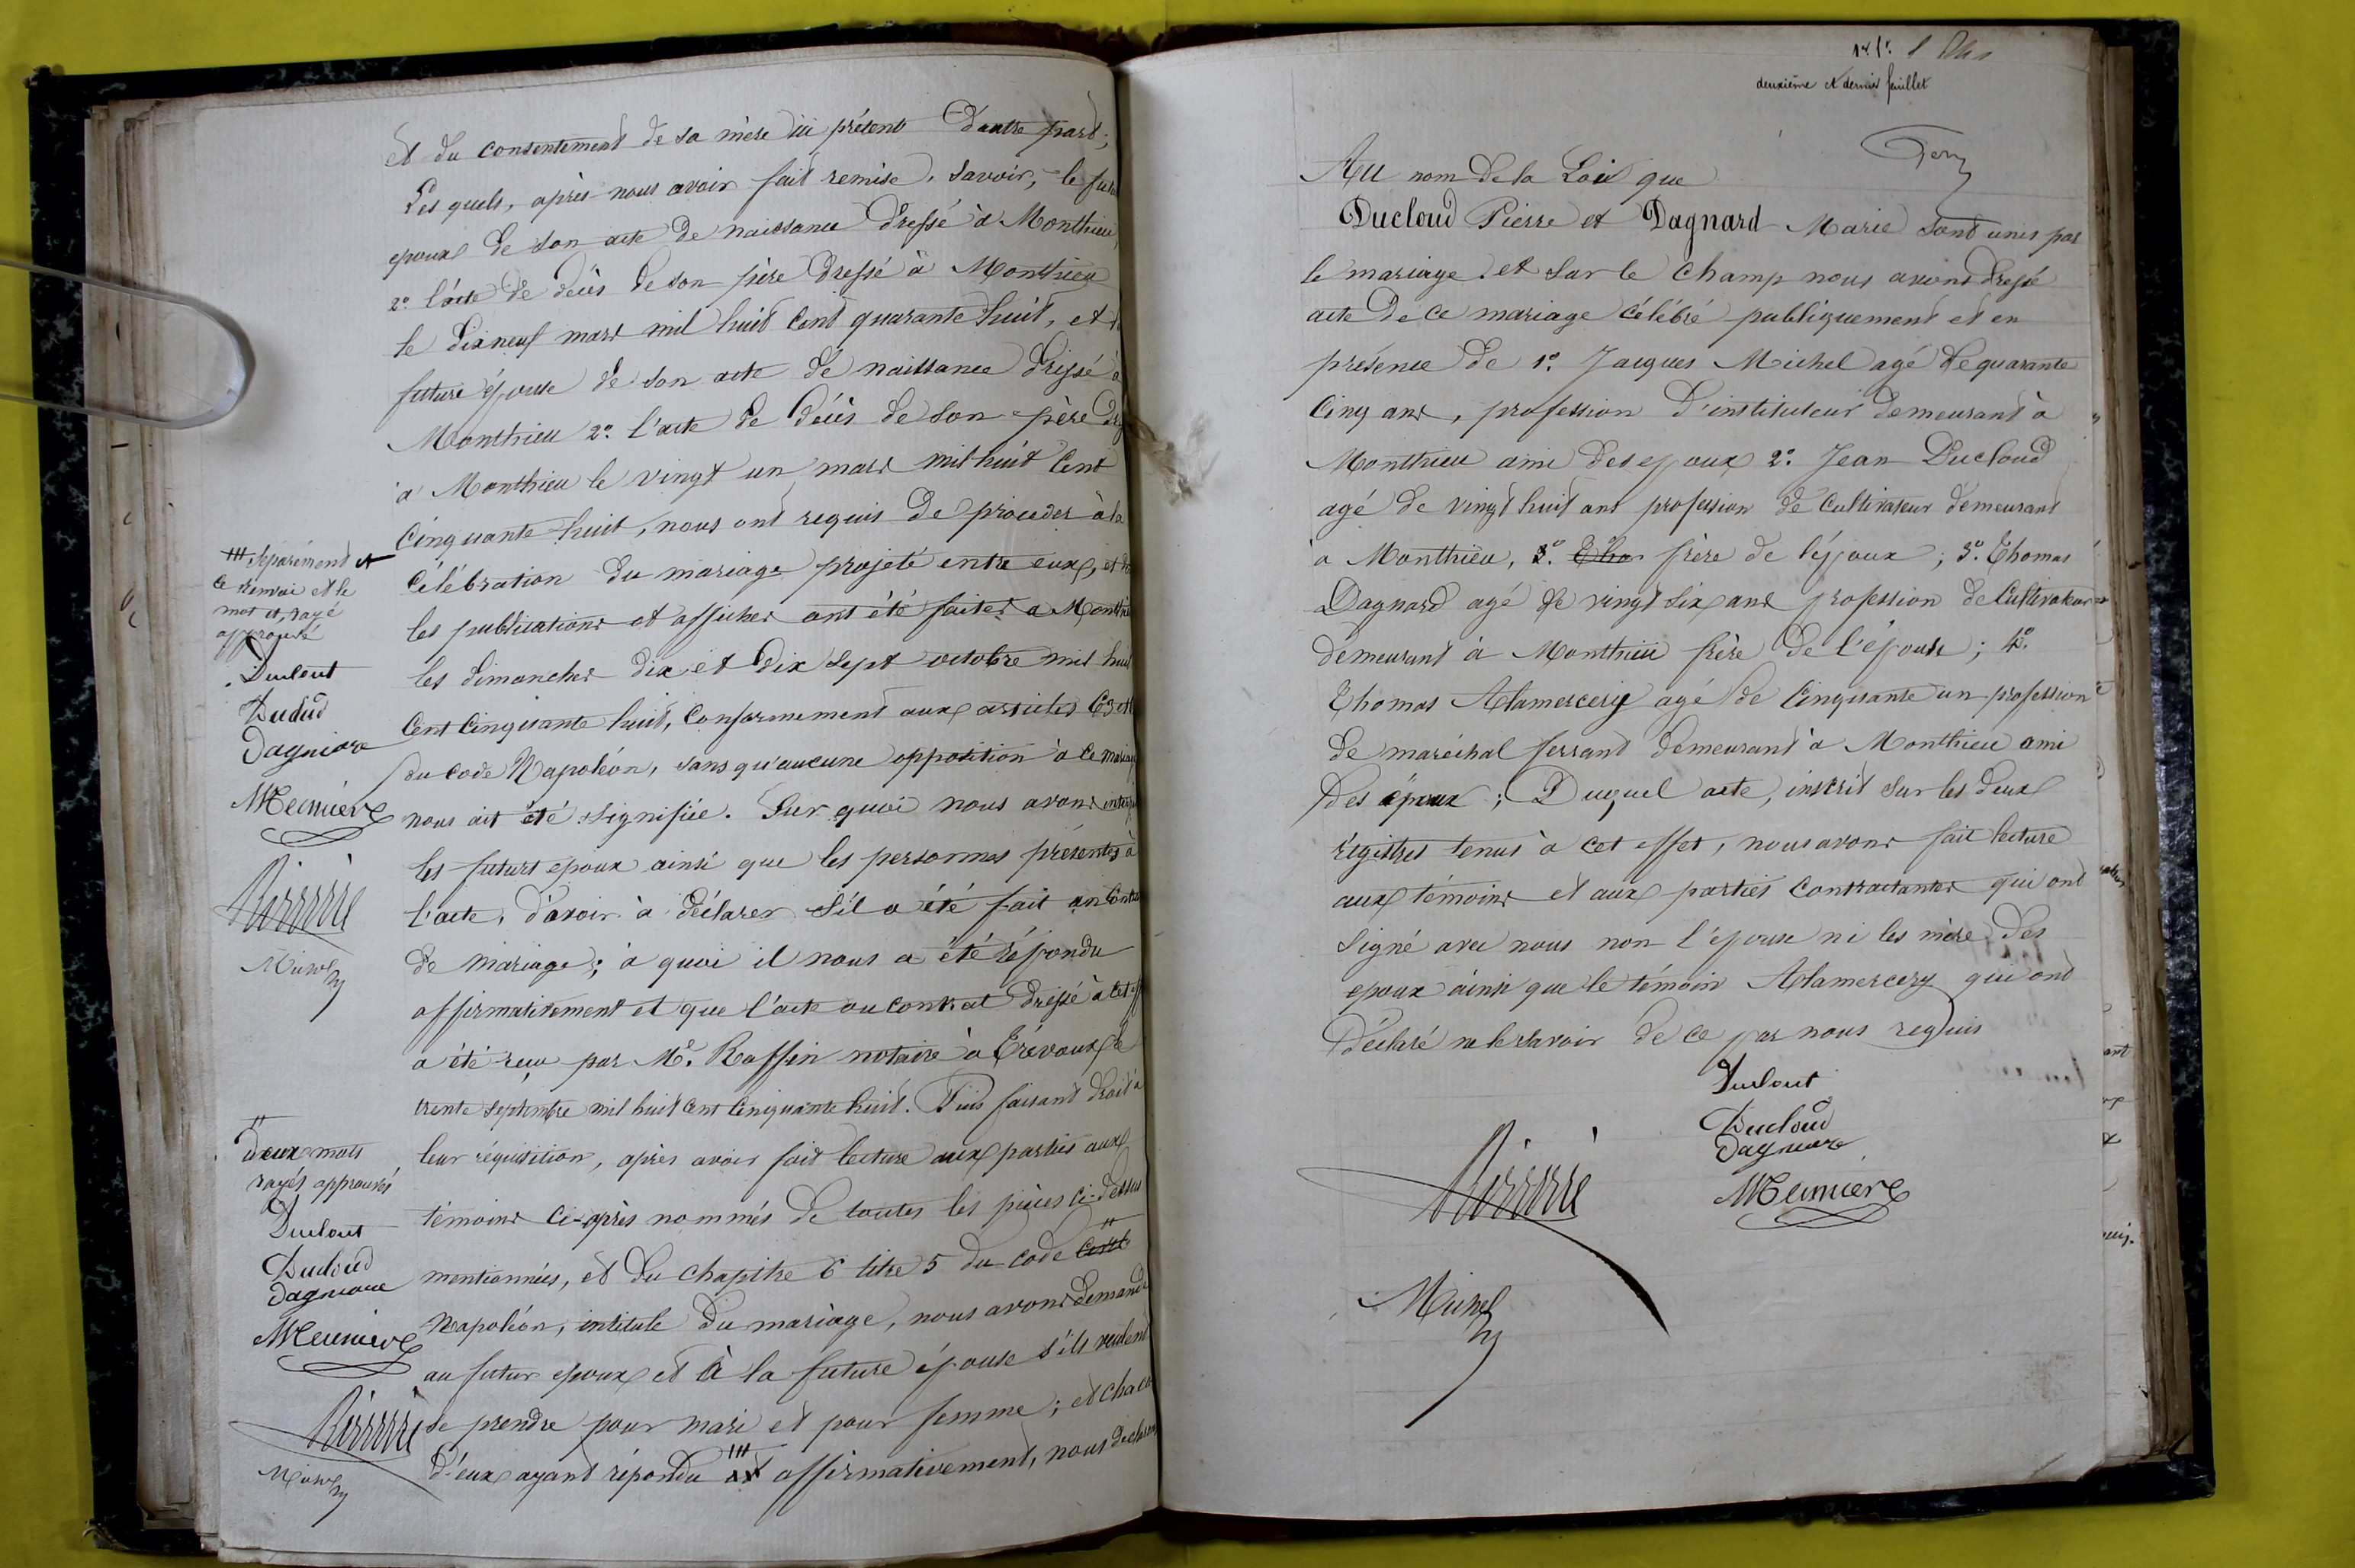 et du consentement de sa mère ici présent d'autre part;
Les quels, après nous avoir fait remise, savoir, le futur
epoux de son acte de naissance dressé à Monthieu,
2º. l'acte de décès de son père dressé à Monthieu
le dix neuf mars mil huit cent quarante huit, et
future épouse de son acte de naissance dressé à
Monthieu 2º. l'acte de décès de son père
a Monthieu le vingt un mars mil huit cent
cinquante huit, nous ont requis de procéder à la
célébration du mariage projeté entre eux, et
les publications et affiches ont été faites a
les dimanches dix et dix sept octobre mil huit
cent cinquante huit, conformement aux articles 63
du code Napoléon, sans qu'aucune opposition à ce
nous ait été signifiée. Sur quoi nous avons
les futurs epoux ainsi que les personnes présentes à
l'acte, d'avoir à déclarer s'il a été fait un
de mariage; à quoi il nous a été répondu
affirmativement et que l'acte ou contrat dressé à cet
a été reçu par Me. Raffin notaire à Trévoux le
trente septembre mil huit cent cinquante huit. Puis faisant droit à
leur réquisition, après avoir fait lecture aux parties aux
témoins ci-après nommés de toutes les pièces ci-dessus
mentionnées, et du chapitre 6 titre 5 du code civil
Napoléon, intitule du mariage, nous avons demandé
au futur epoux et à la future épouse s'ils veulent
se prendre pour mari et pour femme; et
d'eux ayant répondu et affirmativement, nous
séparément et
ce renvoi et le
mot et, rayé
approuvé
Duclout
Duclud
Dagniare
Meuniere
Michel
deux mots
rayés approuvés
Duclout
Ducloud
Dagniare
Meuniere
Michel
deuxième et dernier feuillet
Au nom de la Loi que
Ducloud Pierre et Dagnard Marie sont unis par
le mariage. et sur le champ nous avons dressé
acte de ce mariage célébré publiquement et en
présence de 1º. Jacques Michel agé de quarante
cinq ans, profession d'instituteur demeurant à
Monthieu ami des epoux 2º. Jean Ducloud
agé de vingt huit ans profession de cultivateur demeurant
a Monthieu, frère de l'époux; 3º. Thomas
Dagnard agé de vingt six ans profession de cultivateur
demeurant à Monthieu frère de l'épouse; 4º.
Thomas Alamercery agé de cinquante un profession
de maréchal ferrant demeurant à Monthieu ami
des époux; Duquel acte, inscrit sur les deux
régistres tenus à cet effet, nous avons fait lecture
aux témoins et aux parties contractantes qui ont
signé avec nous non l'épouse ni les mère des
epoux ainsi que le témoin Alamercery qui ont
déclaré ne le savoir de ce par nous requis
Duclout
Ducloud
Dagniare
Meuniere
Michel